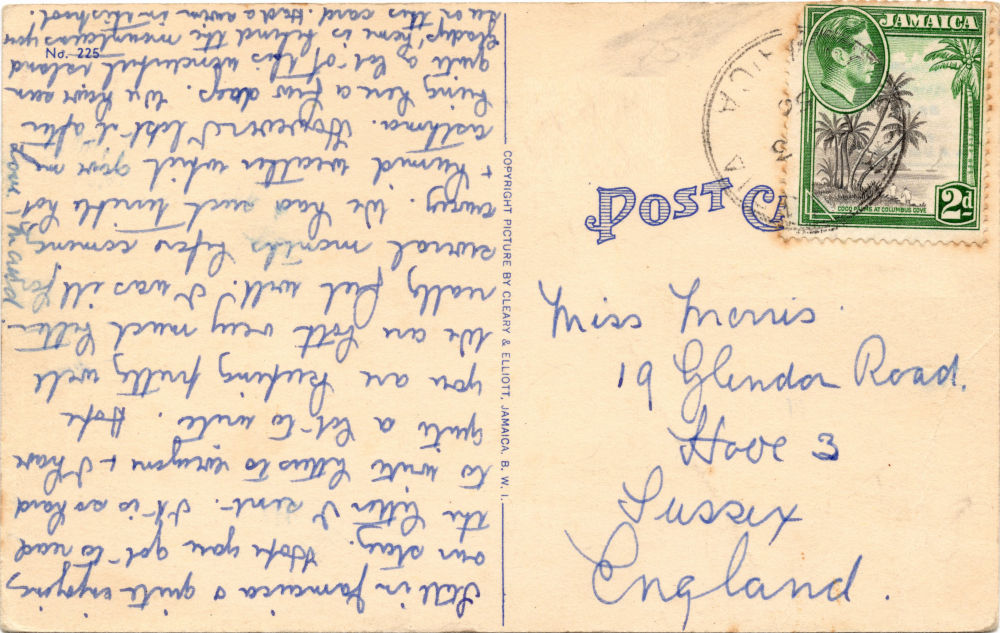 Still in Jamaica & quite enjoying
our stay. Hope you got to read
the letter I sent. It is so hard
to write letters to everyone & I have
quite a lot to write. Hope
you are keeping pretty well
We are both very much better
really feel well. I was ill for
several months before coming
away. We had such terrible hot
& humid weather which gave me
asthma. However I lost it after
being here a few days. We have seen
quite a lot of this wonderful island
Gladys' home is behind the mountains you
see on this card. Had a swim in this pool.
Love
No. 225
COPYRIGHT PICTURE BY CLEARY & ELLIOTT, JAMAICA, B. W. I.
POST CA
JAMAICA
COCO PALMS AT COLUMBUS COVE
2d
Miss Morris
19 Glendor Road.
Hove 3
Sussex
England.